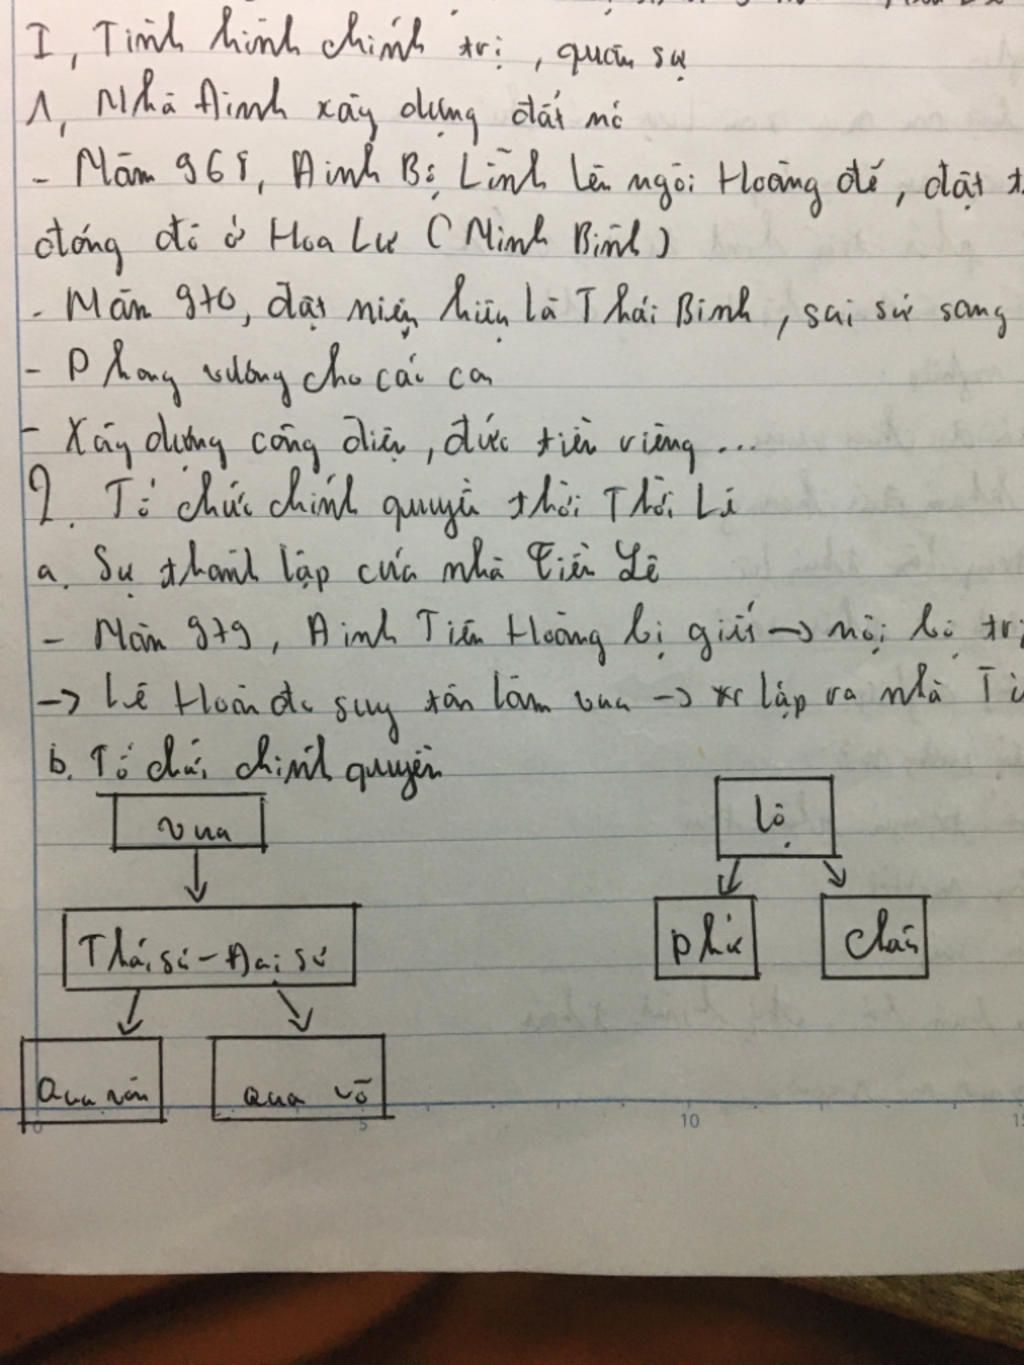 I, Tình hình chính trị, quân sự
1, Nhà Đinh xây dựng đất nc
- Năm 968, Đinh Bộ Lĩnh lên ngôi Hoàng đế, đặt
đóng đô ở Hoa Lư (Ninh Bình)
- Năm 970, đặt niên hiệu là Thái Bình, sai sứ sang
- Phong vương cho các con
- Xây dựng cung điện, đúc tiền riêng...
2. Tổ chức chính quyền thời Lê
a. Sự thành lập của nhà Tiền Lê
- Năm 979, Đinh Tiên Hoàng bị giết -> nội bộ
-> Lê Hoàn đc suy tôn làm vua -> lập ra nhà
b. Tổ chức chính quyền
Vua
Lộ
Thái sư - Đại sư
Phủ
Châu
Quan văn
Quan võ
0 5 10